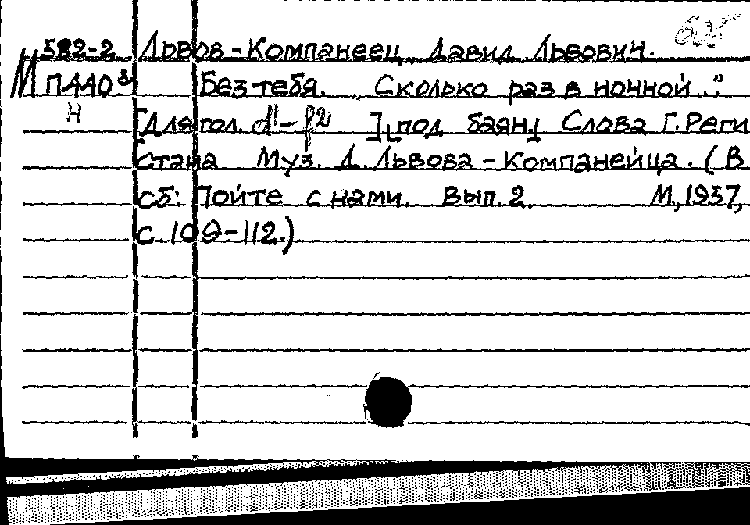 582-2 Львов-Компанеец Давид Львович.
М ПА40 Без тебя. Сколько раз в ночной..."
Н [Для гол. d¹-f2 ] [под баян] Слова Г. Реги
стана Муз. Д. Львова-Компанейца. (В
сб: Пойте с нами. Вып. 2. М, 1957,
с. 109-112.)